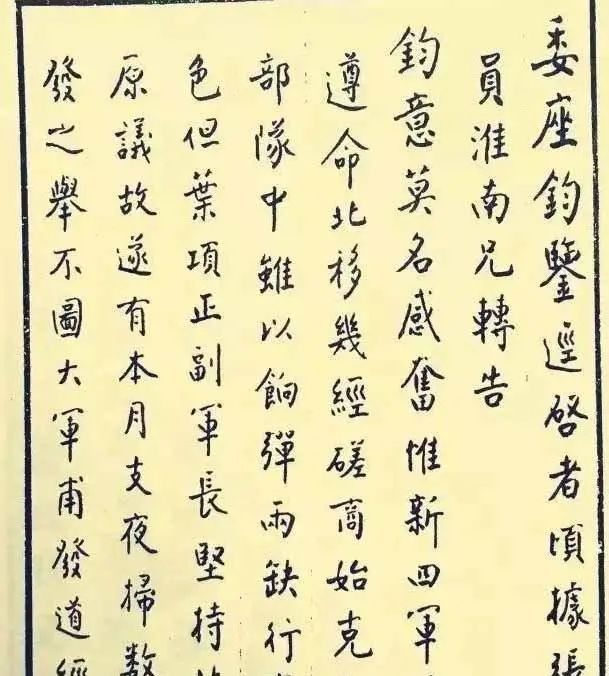 委座鈞鑒逕啓者頃據張
員淮南兄轉告
鈞意莫名感奮惟新四軍
遵命北移幾經磋商始克
部隊中雖以餉彈兩缺行
色但葉項正副軍長堅持
原議故遂有本月支夜掃数
發之舉不圖大軍甫發道經